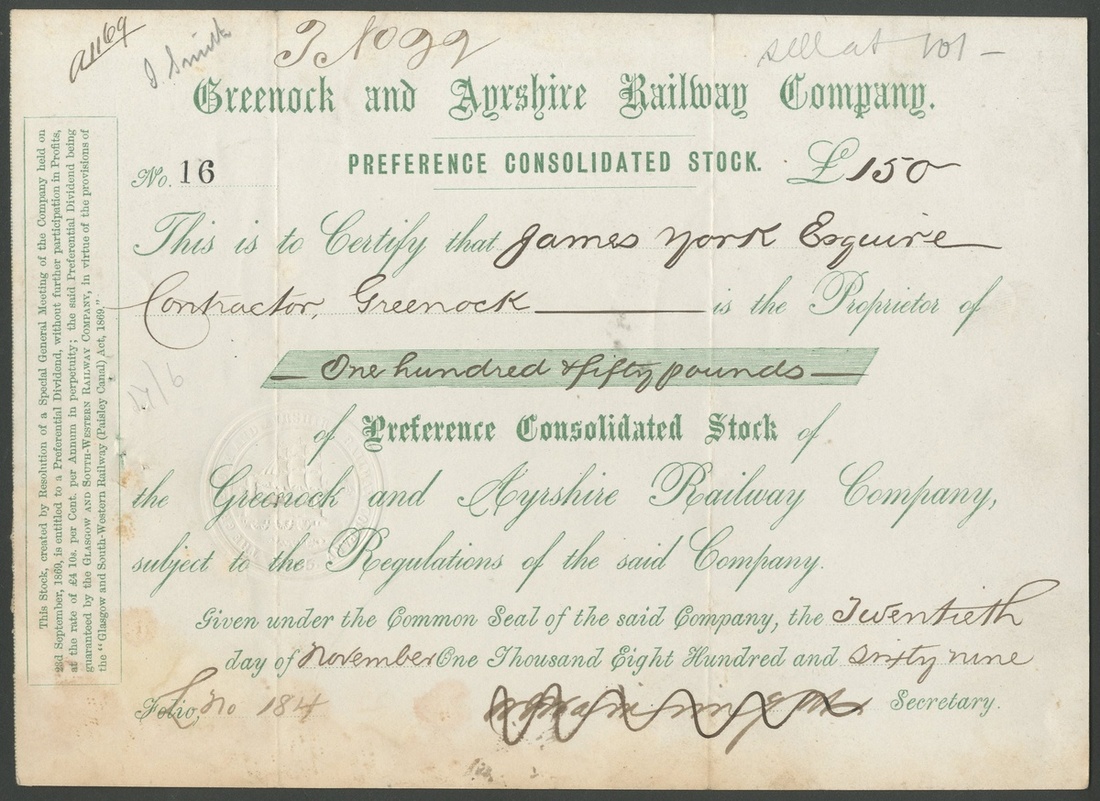 a1169
J. Smith
T No 99
sell at 101 -
Greenock and Ayrshire Railway Company.
No. 16
PREFERENCE CONSOLIDATED STOCK.
£150
This is to Certify that James York Esquire
Contractor, Greenock is the Proprietor of
One hundred & fifty pounds
of Preference Consolidated Stock of
the Greenock and Ayrshire Railway Company,
subject to the Regulations of the said Company.
Given under the Common Seal of the said Company, the Twentieth
day of November One Thousand Eight Hundred and Sixty nine
Folio, No 184
Secretary.
This Stock, created by Resolution of a Special General Meeting of the Company held on
23d September, 1869, is entitled to a Preferential Dividend, without further participation in Profits,
at the rate of £4 10s. per Cent. per Annum in perpetuity; the said Preferential Dividend being
guaranteed by the GLASGOW AND SOUTH-WESTERN RAILWAY COMPANY, in virtue of the provisions of
the "Glasgow and South-Western Railway (Paisley Canal) Act, 1869."